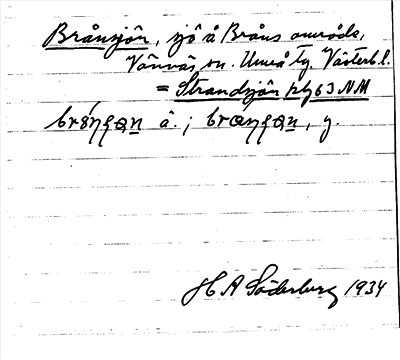 Brånsjön, sjö å Bråns område,
Vännäs sn. Umeå tg. Västerb. l.
= Strandsjön kbl 63 NM
ä. ; y.
H A Söderberg 1934